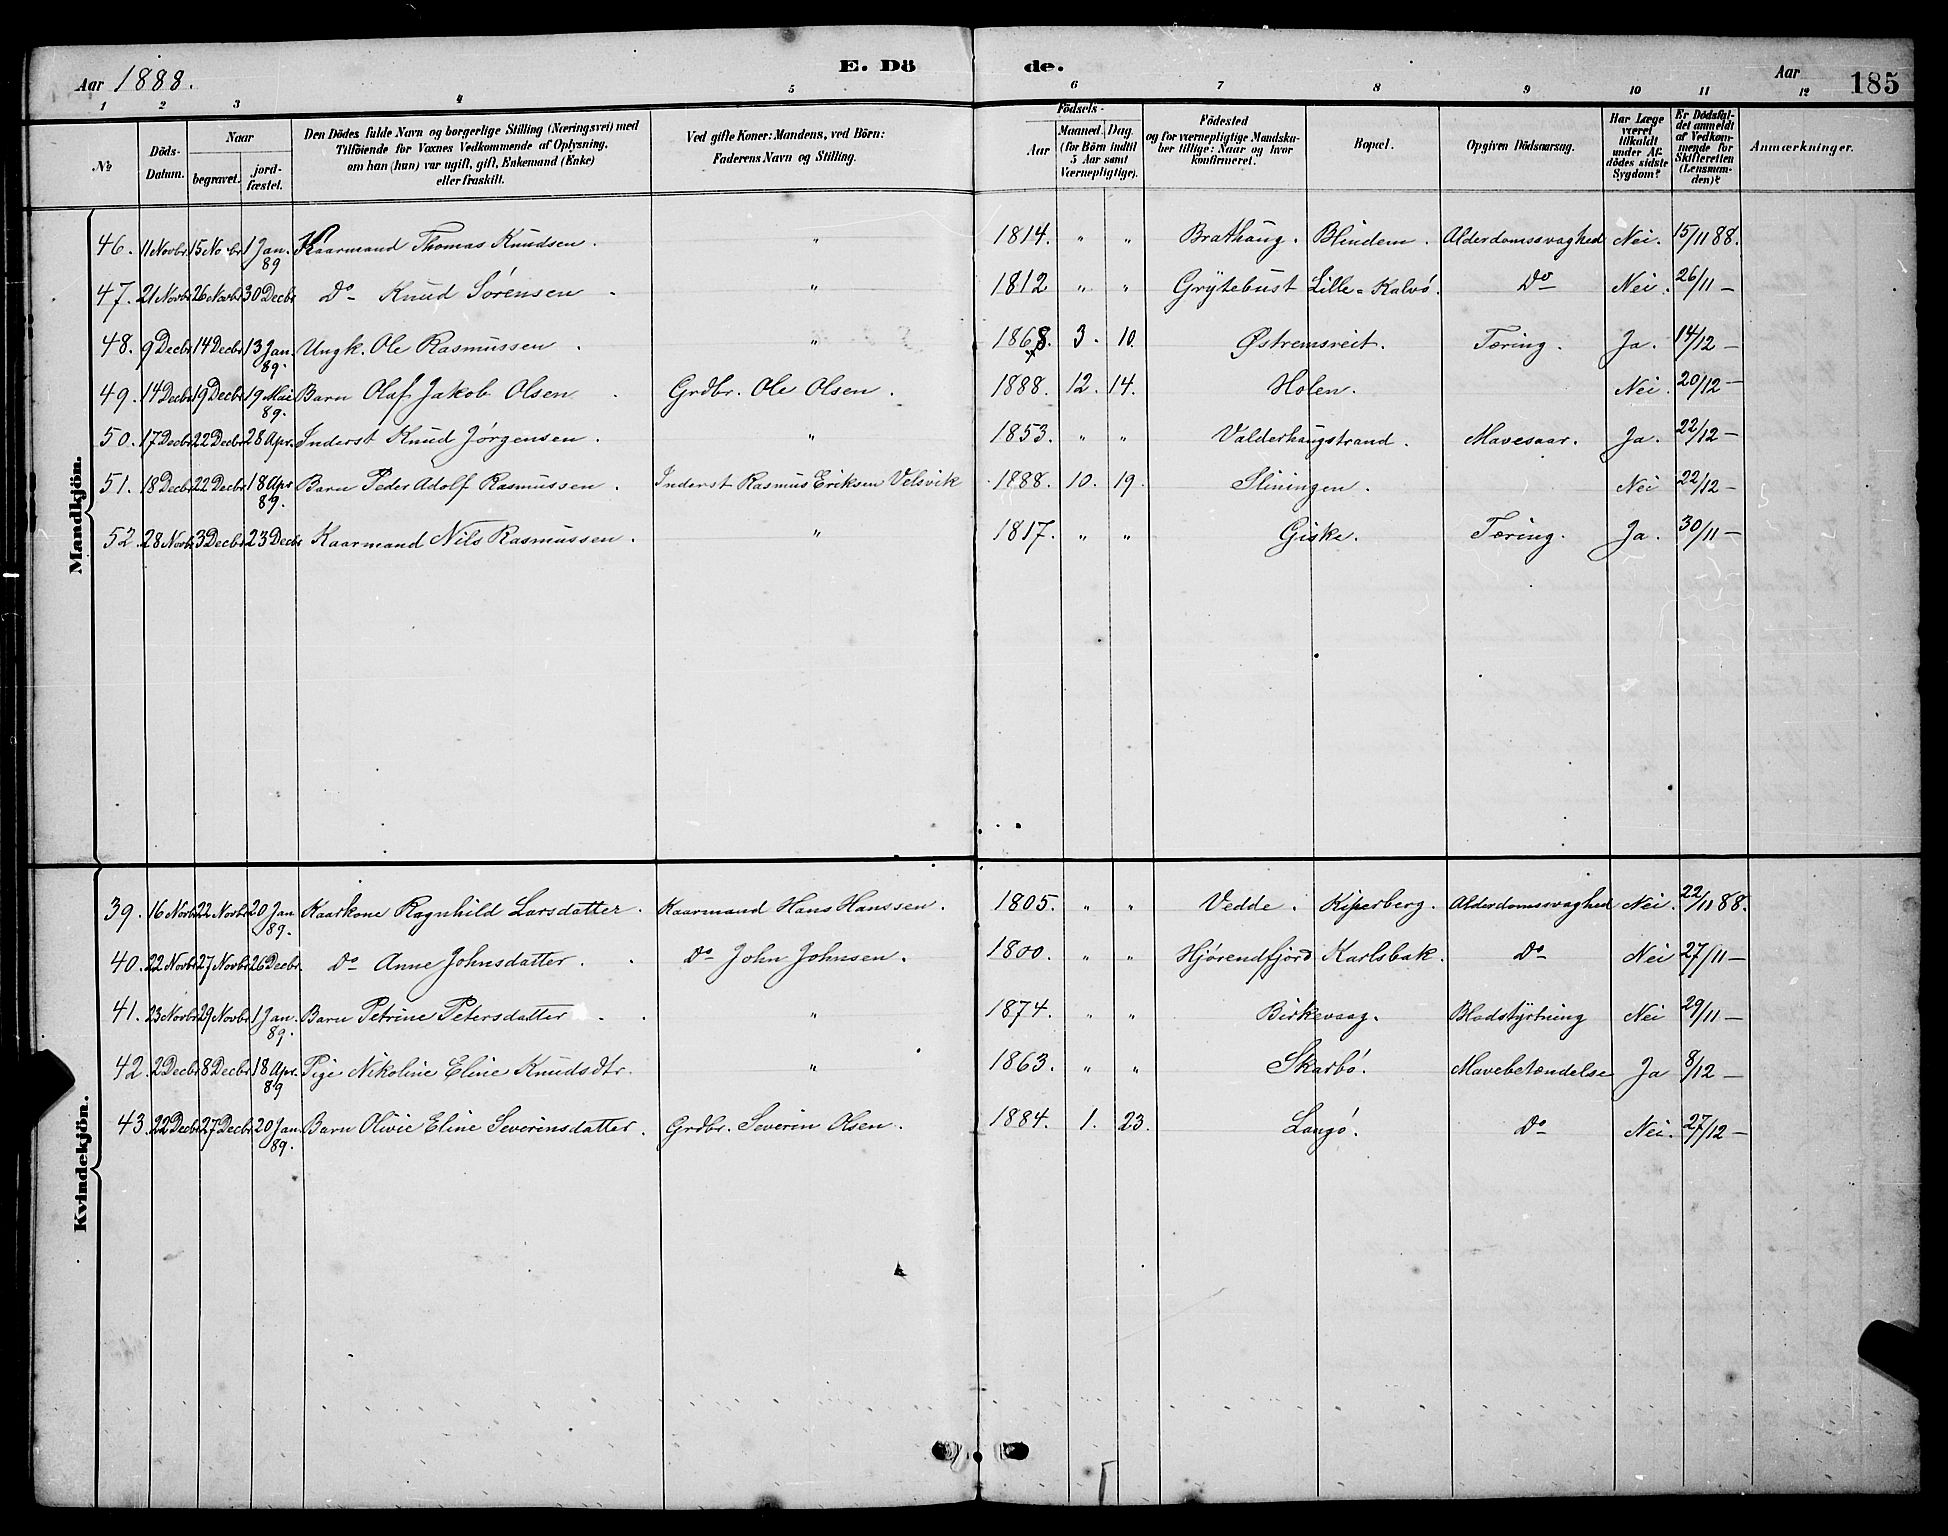 Aar 1888. E. Dö de. Aar 185
1 2 3 4 5 6 7 8 9 10 11 12
№ Döds-Datum. Naar begravet. jordfæstet. Den Dödes fulde Navn og borgerlige Stilling (Næringsvei) med Tilföiende for Voxnes Vedkommende af Oplysning, om han (hun) var ugift, gift, Enkemand (Enke) eller fraskilt. Ved gifte Koner: Mandens, ved Börn: Faderens Navn og Stilling. Födsels- Aar Maaned. Dag. (for Börn indtil 5 Aar samt Værnepligtige). Födested og for værnepligtige Mandskaber tillige: Naar og hvor konfirmeret. Bopæl. Opgiven Dödsaarsag. Har Læge været tilkaldt under Afdödes sidste Sygdom? Er Dödsfaldet anmeldt af Vedkommende for Skifteretten (Lensmanden)? Anmærkninger.
Mandkjön.
46. 11 Novbr 15 Novbr 1 Jan. 89 Kaarmand Thomas Knudsen. " 1814. " " Brathaug. Blindem. Alderdomssvaghed Nei. 15/11 88.
47. 21 Novbr 26 Novbr 30 Decbr Do Knud Sørensen " 1812 " " Grytebust Lille-Kalvø. Do Nei. 26/11 —
48. 9 Decbr 14 Decbr 13 Jan. 89. Ungk. Ole Rasmussen. " 1868. 3. 10. Østremsreit. Tæring. Ja. 14/12 —
49. 14 Decbr 19 Decbr 19 Mai 89. Barn Olaf Jakob Olsen. Grdbr. Ole Olsen. 1888. 12. 14. Holen. Nei. 20/12 —
50. 17 Decbr 22 Decbr 28 Apr. Inderst Knud Jørgensen. " 1853. " " Valderhaugstrand. Mavesaar. Ja. 22/12 —
51. 18 Decbr 22 Decbr 18 Apr 89. Barn Peder Adolf Rasmussen. Inderst Rasmus Eriksen Velsvik 1888. 10. 19. Sliningen. Nei 22/12 —
52. 28 Novbr 3 Decbr 23 Decbr Kaarmand Nils Rasmussen. " 1817. " " Giske. Tæring. Ja. 30/11 —
Kvindekjön.
39. 16 Novbr 22 Novbr 20 Jan 89. Kaarkone Ragnhild Larsdatter. Kaarmand Hans Hanssen. 1805. " " Vedde. Kiperberg. Alderdomssvaghed Nei. 22/11 88.
40. 22 Novbr 27 Novbr 26 Decbr. Do Anne Johnsdatter. Do John Johnsen. 1800. " " Hjørendfjord Karlsbak. Do Nei 27/11 —
41. 23 Novbr 29 Novbr 1 Jan. 89. Barn Petrine Petersdatter. " 1874. " " Birkevaag. Blodstyrtning Nei 29/11 —
42. 2 Decbr 8 Decbr 18 Apr. 89 Pige Nikoline Eline Knudsdtr. " 1863. " " Skarbø. Mavebetændelse Ja 8/12 —
43. 22 Decbr 27 Decbr 20 Jan 89. Barn Olivie Eline Severinsdatter. Grdbr. Severin Olsen. 1884. 1. 23. Langø. Do Nei. 27/12 —